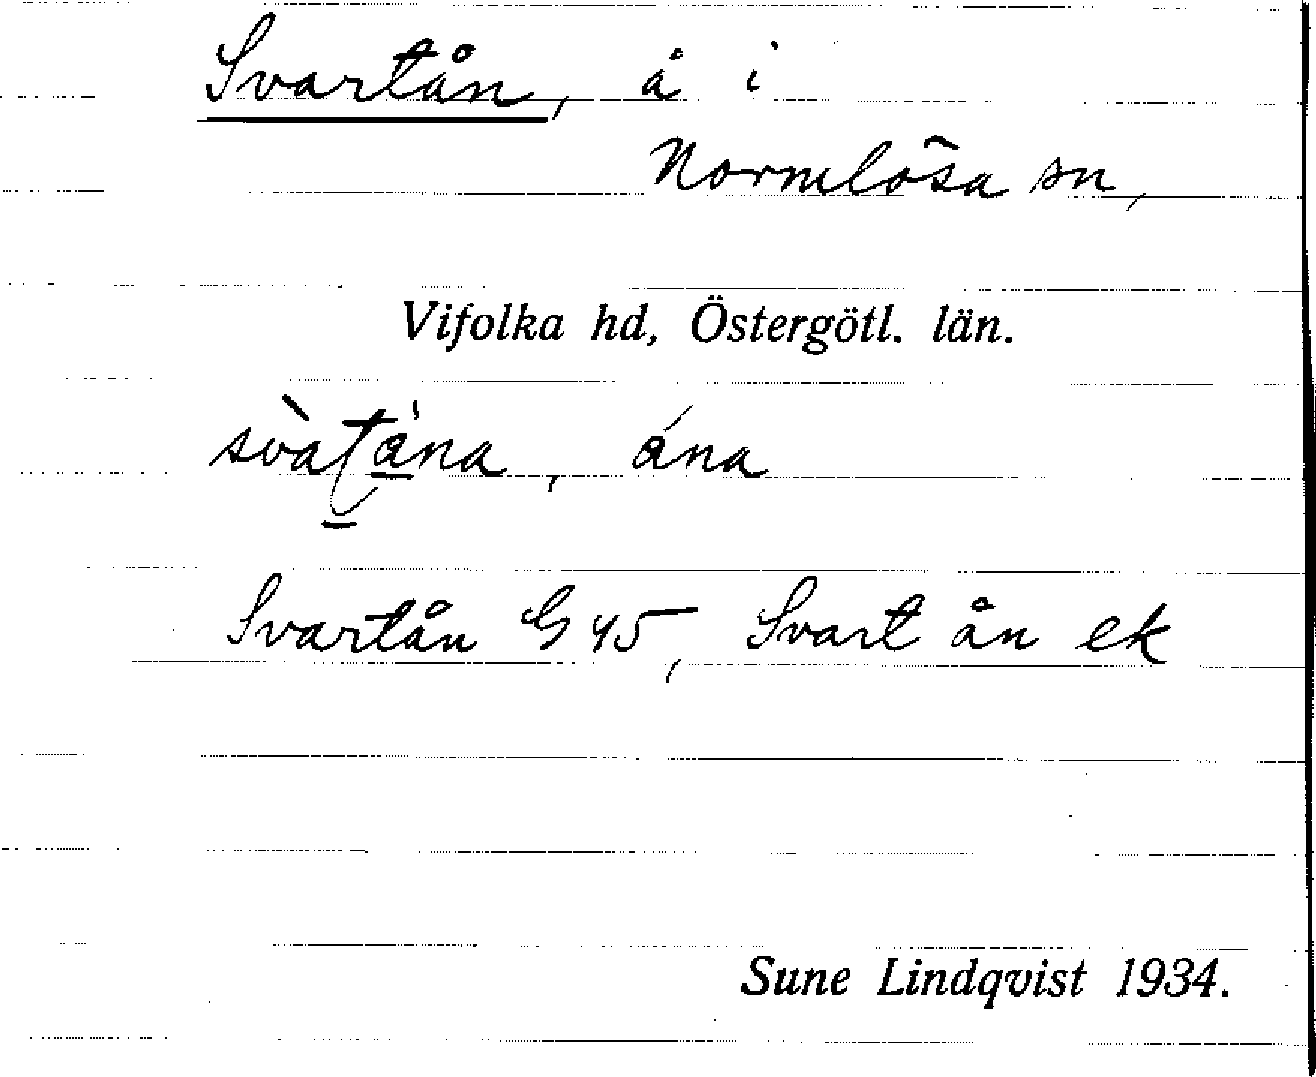 Svartån, å i
Normlösa sn,
Vifolka hd, Östergötl. län.
svàtå̀na, ána
Svartån G 45, Svart ån ek
Sune Lindqvist 1934.